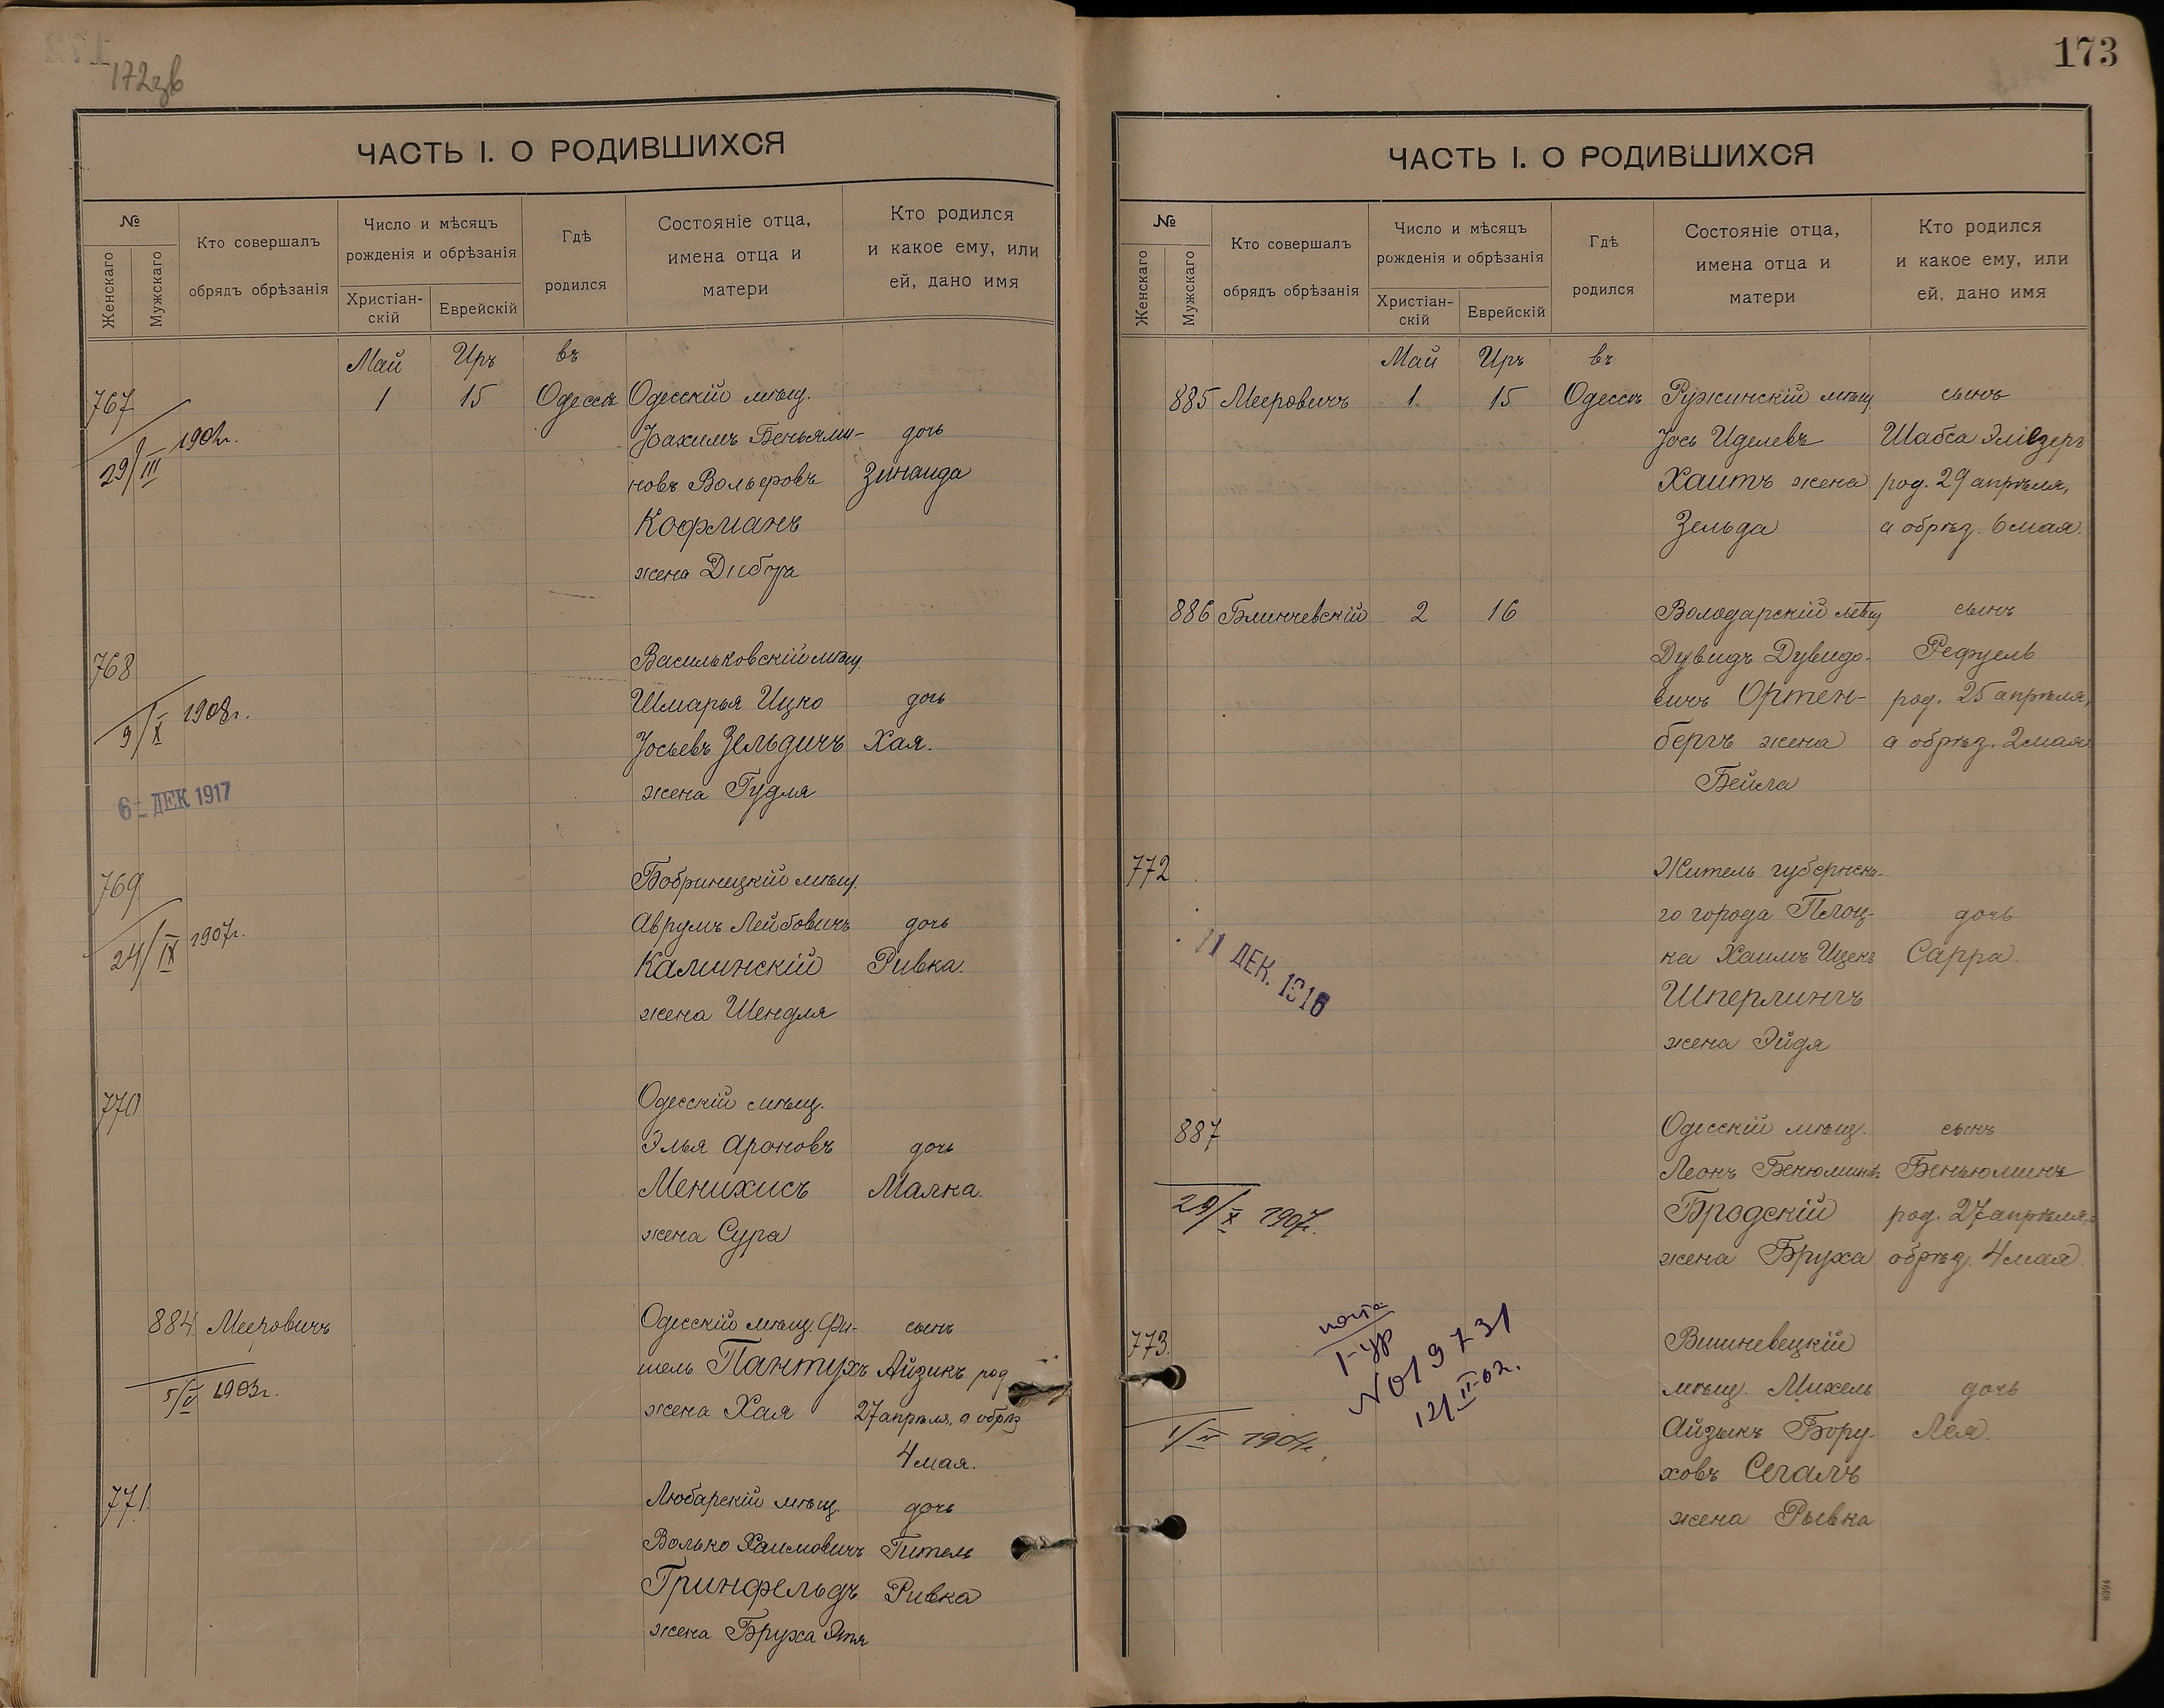 172зв
ЧАСТЬ I. О РОДИВШИХСЯ
№
Женскаго
Мужскаго
Кто совершалъ
обрядъ обрѣзанія
Число и мѣсяцъ
рожденія и обрѣзанія
Христіан-
скій
Еврейскій
Гдѣ
родился
Состояніе отца,
имена отца и
матери
Кто родился
и какое ему, или
ей, дано имя
Май Иръ въ
767 1 15 Одессѣ Одесскій мѣщ.
Іоахимъ Беньями- дочь
29/III
новъ Вольфовъ Зинаида
Кофманъ
жена Дибора
768 Васильковскій мѣщ.
Шмарья Ицко дочь
9/X 1908г.
Іосьевъ Зельдичъ Хая.
жена Гудля
6- ДЕК 1917
769 Бобринецкій мѣщ.
Аврумъ Лейбовичъ дочь
24/IX 1907г.
Калинскій Ривка.
жена Шендля
770 Одесскій мѣщ.
Элья Ароновъ дочь
Менихисъ Малка.
жена Сура
884 Мееровичъ Одесскій мѣщ. Фи- сынъ
шель Пантухъ Айзикъ род
5/V 1903г.
жена Хая 27 апрѣля, а обрѣз
4 мая.
771 Любарскій мѣщ. дочь
Волько Хаимовичъ Гитель
Гринфельдъ Ривка
жена Бруха Этя
173
ЧАСТЬ I. О РОДИВШИХСЯ
№
Женскаго
Мужскаго
Кто совершалъ
обрядъ обрѣзанія
Число и мѣсяцъ
рожденія и обрѣзанія
Христіан-
скій
Еврейскій
Гдѣ
родился
Состояніе отца,
имена отца и
матери
Кто родился
и какое ему, или
ей, дано имя
Май Иръ въ
885 Мееровичъ 1 15 Одессѣ Ружинскій мѣщ. сынъ
Іось Иделевъ Шабса Эліезеръ
Хаитъ жена род. 29 апрѣля,
Зельда а обрѣз. 6 мая.
886 Блинчевскій 2 16 Володарскій мѣщ сынъ
Дувидъ Дувидо- Рефуель
вичъ Ортен- род. 25 апрѣля,
бергъ жена а обрѣз. 2 мая
Бейла
772 Житель губернск-
го города Плоц- дочь
ка Хаимъ Ицекъ Сарра.
11 ДЕК. 1916
Шперлингъ
жена Эйдя
887 Одесскій мѣщ. сынъ
Леонъ Бенюминъ Беньюминъ
29/X 1907г.
Бродскій род. 27 апрѣля,
жена Бруха обрѣз. 4 мая.
773. Вишневецкій
мѣщ. Михель дочь
№ 19731
12/II-02.
Айзыкъ Бору- Лея.
1/IV 1904г.
ховъ Сегалъ
жена Рывка